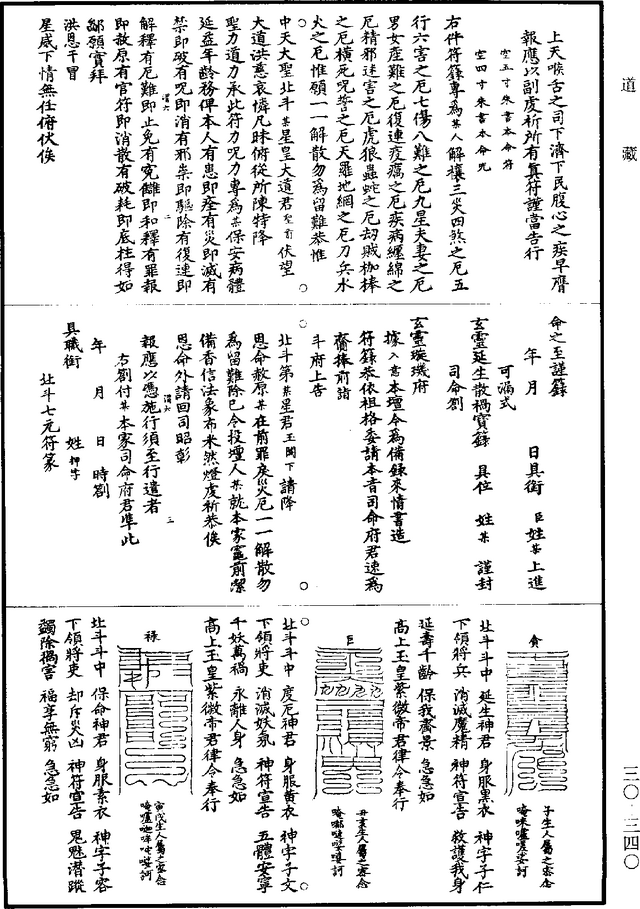 道藏
上天喉舌之司下濟下民腹心之疾早膺
報應以副虔祈所有真符謹當告行
空五寸朱書本命符
空四寸朱書本命咒
右件符籙專為某人解禳三災四煞之厄五
行六害之厄七傷八難之厄九星夫妻之厄
男女產難之厄復連疫癘之厄疾病纏綿之
厄精邪迷害之厄虎狼蟲蛇之厄劫賊枷棒
之厄橫死咒誓之厄天羅地網之厄刀兵水
火之厄惟願一一解散勿為留難恭惟
中天大聖北斗某星皇大道君至前伏望
大道洪慈哀憐凡昧俯從所陳特降
聖力道力承此符力咒力專為某保安病體
延益年齡務俾本人有患即痊有災即滅有
禁即破有咒即消有邪祟即驅除有復連即
解釋有厄難即止免有冤讎即和釋有罪報
即赦原有官符即消散有破耗即底柱得如
鄙願實拜
洪恩干冒
星威下情無任俯伏俟
命之至謹籙
年 月 日具銜 臣姓某上進
可漏式
玄靈延生散禍寶籙 具位 姓某 謹封
司命劄
玄靈璇璣府
據入意本壇今為備錄來情書造
符籙恭依祖格委請本音司命府君速為
齎捧前詣
斗府上告
北斗第某某星君玉闕下請降
恩命赦原某在前罪戾災厄一一解散勿
為留難除已令投壇人某就本家竈前潔
備香信法象布米然燈虔祈恭俟
恩命外請回司昭彰
報應以憑施行須至行遣者
右劄付某本家司命府君準此
年 月 日 時劄
具職銜 姓 押字
北斗七元符篆
貪
子生人屬之密念
北斗斗中 延生神君 身服黑衣 神字子仁
下領將兵 消滅魔精 神符宣告 救護我身
延壽千齡 保我齋景 急急如
高上玉皇紫微帝君律令奉行
巨
丑亥生人屬之密念
北斗斗中 度厄神君 身服黃衣 神字子文
下領將吏 消滅妖氛 神符宣告 五體安寧
千妖萬禍 永離人身 急急如
高上玉皇紫微帝君律令奉行
祿
寅戌生人屬之密念
北斗斗中 保命神君 身服素衣 神字子容
下領將吏 却斥災凶 神符宣告 鬼魅潛蹤
蠲除禍害 福享無窮 急急如
三〇·三四〇